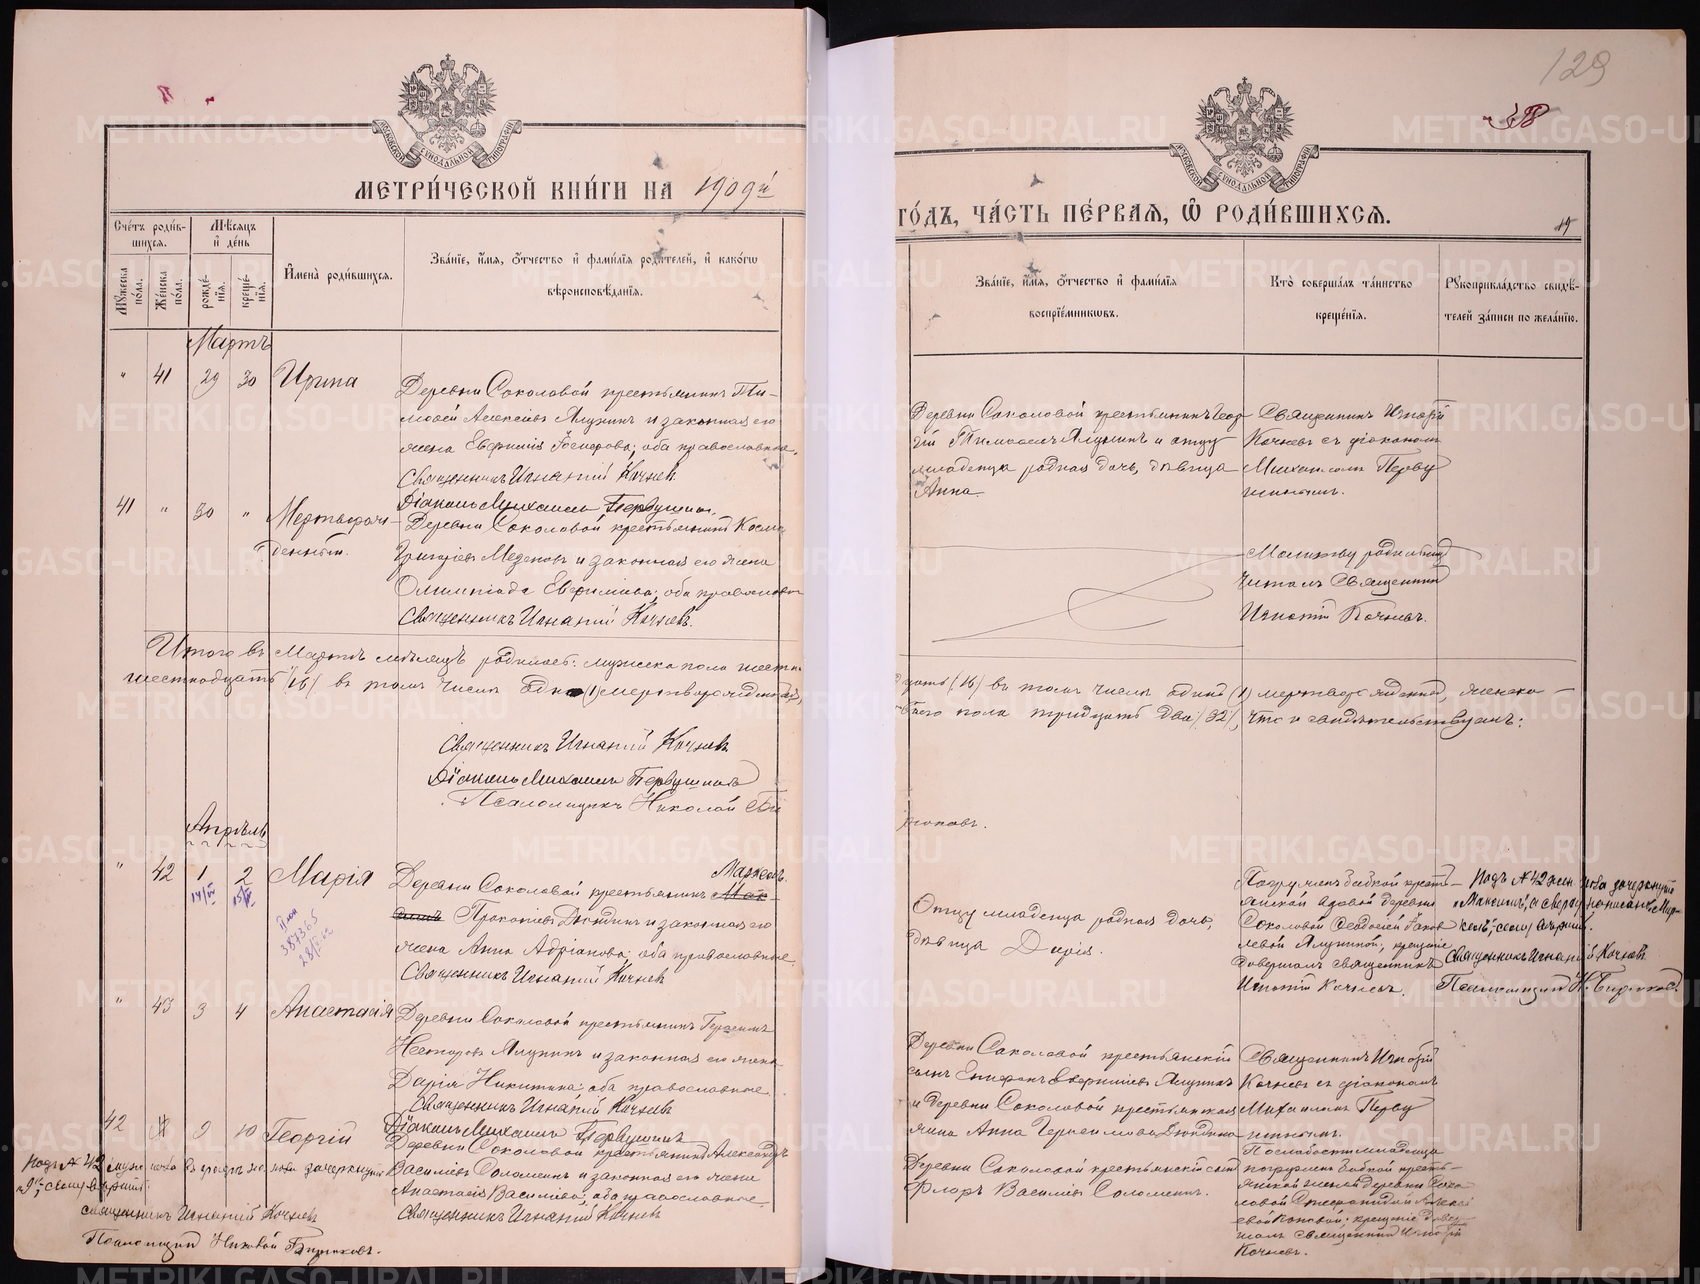 129
МЕТРИ́ЧЕСКОЙ КНИ́ГИ НА 1909й
ГО́ДЪ, ЧА́СТЬ ПЕ́РВАЯ, Ѡ҆ РОДИ́ВШИХСЯ.
Сче́тъ роди́вшихся.
Мꙋ́жеска по́ла.
Же́нска по́ла.
Мѣ́сяцъ и҆ де́нь
рожде́нїя.
креще́нїя.
И҆мена̀ роди́вшихся.
Зва́нїе, и҆́мя, ѻ҆́тчество и҆ фами́лїя роди́телей, и҆ како́гѡ
вѣроисповѣ́данїя.
Зва́нїе, и҆́мя, ѻ҆́тчество и҆ фами́лїя
воспрїе́мникѡвъ.
Кто̀ соверша́лъ та́инство
креще́нїя.
Рꙋкоприкла́дство свидѣ́телей за́писи по жела́нїю.
Мартъ
" 41 29 30 Ирина
Деревни Соколовой крестьянинъ Ти-
моѳей Алексѣевъ Ялунинъ и законная его
жена Евфимія; оба православные.
Священникъ Игнатій Кочневъ
Діаконъ Михаилъ Первушинъ.
Деревни Соколовой крестьянинъ Геор-
гій Тимоѳеевъ Ялунинъ и отцу
младенца родная дочь, дѣвица
Анна.
Священникъ Игнатій
Кочневъ съ діакономъ
Михаиломъ Перву
шинымъ.
41 " 30 " Мертворож-
денный.
Деревни Соколовой крестьянинъ Косма
Григорьевъ и законная его жена
Олимпіада Евфимова; оба православные
Священникъ Игнатій Кочневъ.
Молитву родильницѣ
читалъ Священникъ
Игнатій Кочневъ.
Итого въ Мартѣ мѣсяцѣ родилось: мужска пола
шестнадцать /16/ въ томъ числѣ одинъ (1) мертворожденный,
дцать (16) въ томъ числѣ одинъ (1) мертворожденный, женска-
пола тридцать два (32), что и свидѣтельствуемъ:
Священникъ Игнатій Кочневъ
Діаконъ Михаилъ Первушинъ
Псаломщикъ Николай Би
рюковъ.
Апрѣль
" 42 1 2 Марія
14/IV 15/IV
387365
Маркелъ.
Деревни Соколовой крестьянинъ Мак-
симъ Прокопіевъ Дюндинъ и законная его
жена Анна Адріанова; оба православные.
Священникъ Игнатій Кочневъ
Отцу младенца родная дочь,
дѣвица Дарія.
Погруженъ бабкой кресть-
янской вдовой деревни
Соколовой Ѳеодосіей Яков
левой Ялуниной; крещеніе
довершалъ Священникъ
Игнатій Кочневъ.
Подъ № 42 жен. пола зачеркнуто
"Максимъ", а сверху написано "Мар-
келъ"; сему вѣримъ.
Священникъ Игнатій Кочневъ
Псаломщикъ Н. Бирюковъ.
" 43 3 4 Анастасія
Деревни Соколовой крестьянинъ Герасимъ
Несторовъ Ялунинъ и законная его жена
Дарія Никитина; оба православные
Священникъ Игнатій Кочневъ
Діаконъ Михаилъ Первушинъ
Деревни Соколовой крестьянскій
сынъ Епифанъ Ялунинъ
и деревни Соколовой крестьянская
Анна Дюндина
Священникъ Игнатій
Кочневъ съ діакономъ
Михаиломъ Перву
шинымъ.
42 9 10 Георгій
Деревни Соколовой крестьянинъ Александръ
Васильевъ Соломеинъ и законная его жена
Анастасія Васильева; оба православные.
Священникъ Игнатій Кочневъ
Деревни Соколовой крестьянскій сынъ
Флоръ Васильевъ Соломеинъ.
По слабости младенца
погруженъ бабкой кресть-
янской женой деревни Соко
ловой
крещеніе довер-
шалъ священникъ Игнатій
Кочневъ.
Подъ № 42 муж. пола въ графѣ жен. пола зачеркнуто
сему вѣримъ.
Священникъ Игнатій Кочневъ
Псаломщикъ Николай Бирюковъ.
METRIKI.GASO-URAL.RU